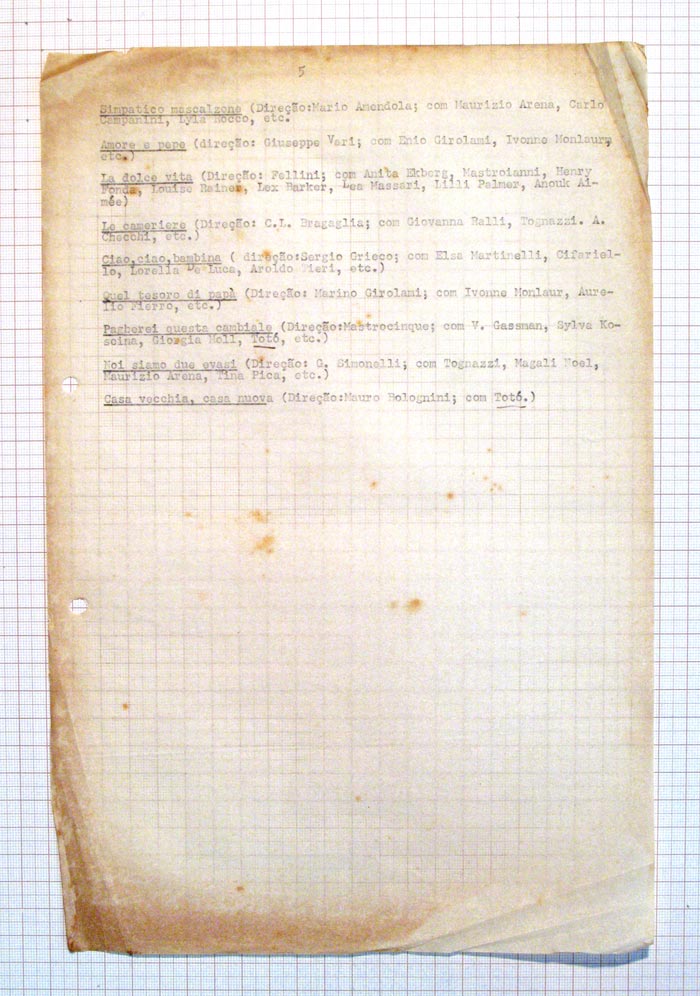 5
Simpatico mascalzone (Direção:Mario Amendola; com Maurizio Arena, Carlo
Campanini, Lyla Rocco, etc.
Amore e pepe (direção: Giuseppe Vari; com Enio Girolami, Ivonne Monlaur,
etc.)
La dolce vita (Direção: Fellini; com Anita Ekberg, Mastroianni, Henry
Fonda, Louise Rainer, Lex Barker, Lea Massari, Lilli Palmer, Anouk Ai-
mée)
Le cameriere (Direção: C.L. Bragaglia; com Giovanna Ralli, Tognazzi. A.
Checchi, etc.)
Ciao,ciao,bambina ( direção:Sergio Grieco; com Elsa Martinelli, Cifariel-
lo, Lorella De Luca, Aroldo Tieri, etc.)
Quel tesoro di papà (Direção: Marino Girolami; com Ivonne Monlaur, Aure-
lio Fierro, etc.)
Pagherei questa cambiale (Direção:Mastrocinque; com V. Gassman, Sylva Ko-
scina, Giorgia Moll, Totó, etc.)
Noi siamo due evasi (Direção: G. Simonelli; com Tognazzi, Magali Noel,
Maurizio Arena, Tina Pica, etc.)
Casa vecchia, casa nuova (Direção:Mauro Bolognini; com Totó.)